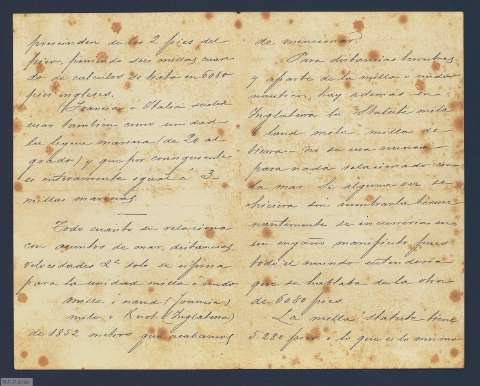 prescinden de los 2 pies del
pico, poniendo seis millas cuando
de calculos se trata en 6080
pies ingleses.
Francia é Italia suelen
usar tambien como unidad
la legua marina (de 20 al
grado) y que por consiguiente
es enteramente igual á 3
millas marinas.
Todo cuanto se relaciona
con asuntos de mar, distancias,
velocidades &ª solo se expresa
para la unidad milla ó nudo
mille ó nœud (francia)
mile, ó Knot (Inglaterra)
de 1852 metros que acabamos
de mencionar.
Para distancias terrestres,
y aparte de la milla ó nudo
nautico, hay ademas en
Inglaterra la Statute mile
ó land mile, milla de
tierra. No se usa nunca
para nada relacionado con
la mar. Si alguna vez se
hiciera sin nombrarla
se incurriria en
un engaño manifiesto pues
todo el mundo entenderia
que se hablaba de la otra
de 6080 pies.
La milla statute tiene
5.280 pies ó lo que es lo mismo